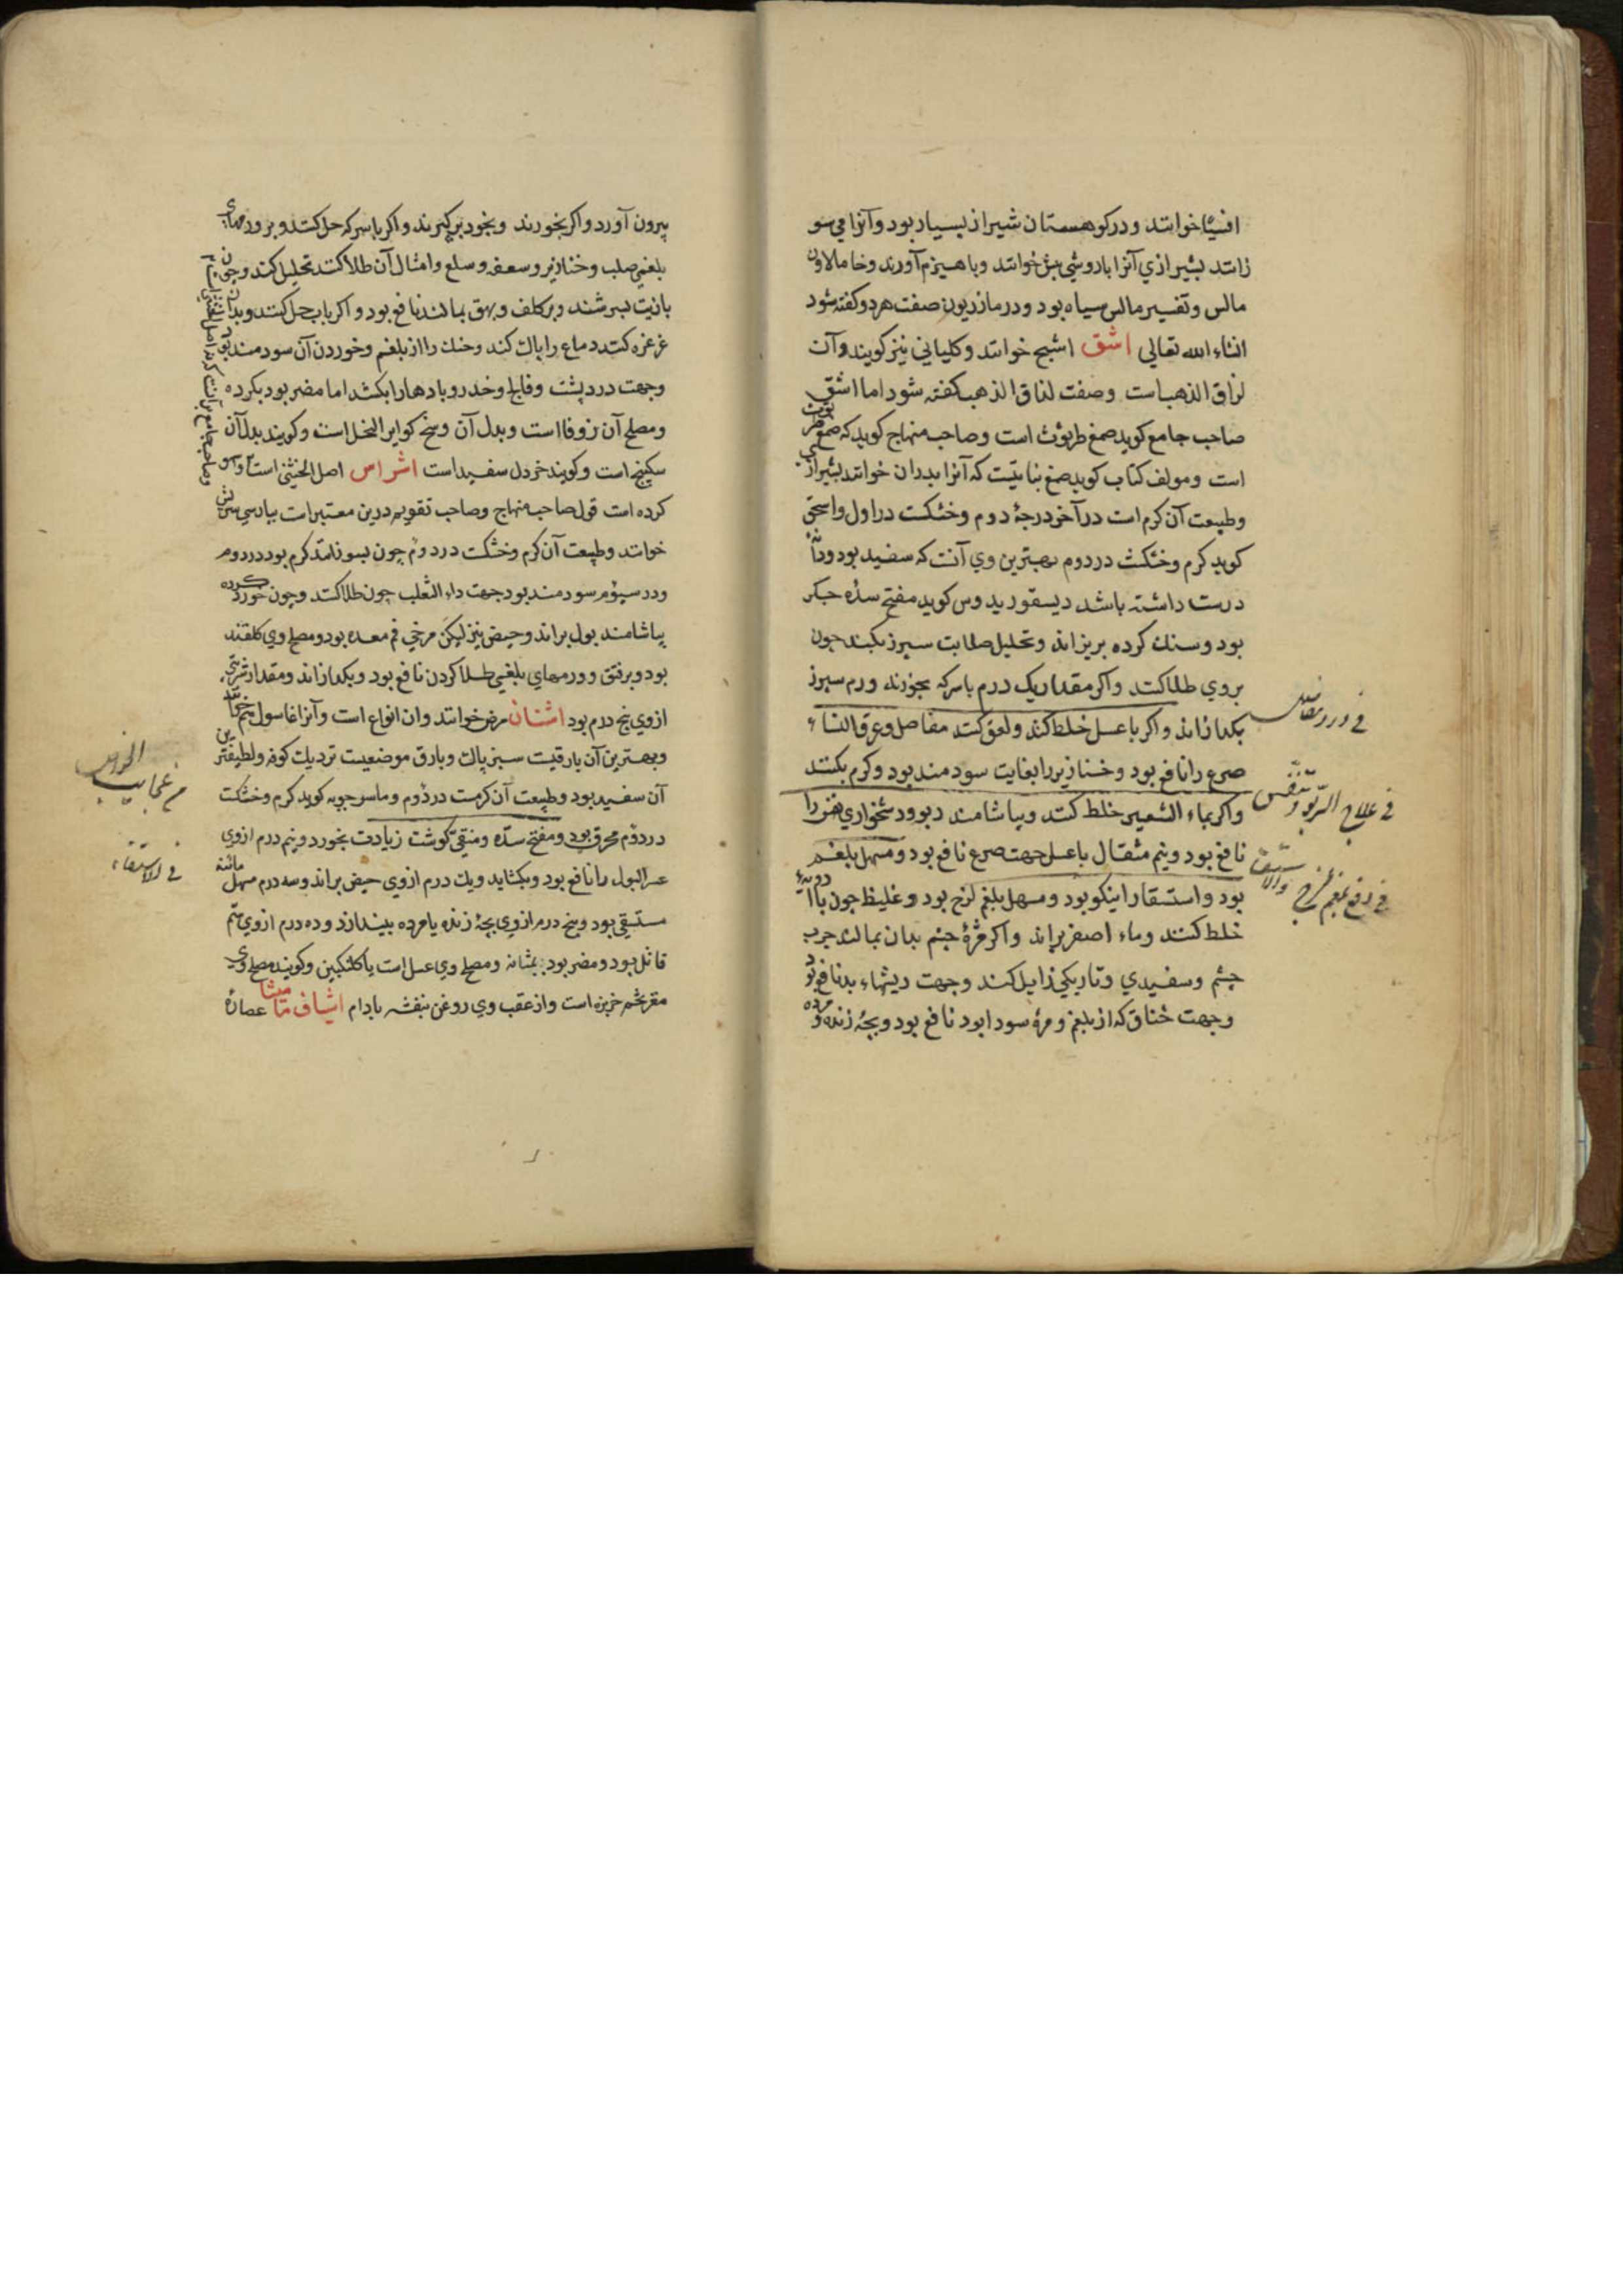 افسیا خوانند و در کوهستان شیراز بسیار بود و آنرا می سو
زانند بشیرازی آنرا باروشی خوانند و با هیزم آورند و خامالاون
مالس و تفسیر مالس سیاه بود و در مازریون صفت هر دو کفته شود
انشاء الله تعالی اشق اشج خوانند و کلیانی نیز کویند و آن
لزاق الذهبست و صفت لزاق الذهب کفته شود اما اشق
صاحب جامع کوید صمغ طرثوث است و صاحب منهاج کوید که صمغ طرثوث
است و مولف کتاب کوید صمغ نباتیست که آنرا بدران خوانند بشیرازی
و طبیعت آن کرم است در آخر درجهٔ دوم و خشکست در اول و اسحق
کوید کرم و خشکست در دوم بهترین وی آنست که سفید بود و دانه
درست داشته باشد دیسقوریدوس کوید مفتح سدهٔ جکر
بود و سنك کرده بریزاند و تحلیل صلابت سپرز بکند چون
بروی طلا کنند و اکر مقدار یک درم با سرکه بخورند ورم سپرز
بکدازاند و اکر با عسل خلط کند و لعق کنند مفاصل و عرق النساء
في درد مفاصل
صرع را نافع بود و خنازیر را بغایت سودمند بود و کرم بکشد
و اکر بماء الشعیر خلط کنند و بیاشامند ربو و دشخواری نفس را
في علاج الربو و تنفس
نافع بود و نیم مثقال با عسل جهت صرع نافع بود و مسهل بلغم
بود و استسقا را نیکو بود و مسهل بلغم لزج بود و غلیظ چون با ادویه
في دفع بلغم لزج والاستسقا
خلط کنند و ماء اصفر براند و اکر مژهٔ چشم بدان بمالند جرب
چشم و سفیدی و تاریکی زایل کند و جهت ریشهاء بد نافع بود
و جهت خناق که از بلغم و مرهٔ سودا بود نافع بود و بچهٔ زنده و مرده
بیرون آورد و اکر بخورند و بخود برکیرند و اکر با سرکه حل کنند و بر ورمهای
بلغمی صلب و خنازیر و سعفه و سلع و امثال آن طلا کنند تحلیل کند و چون
با زیت بسرشند و بر کلف و بهق بمالند نافع بود و اکر باب حل کنند و بدان
غرغره کنند دماغ را پاك کند و حنك را از بلغم و خوردن آن سودمند بود
وجهت درد پشت و فالج و خدر و بادها را بکشد اما مضر بود بکرده
و مصلح آن زوفا است و بدل آن وسخ کوایر النحل است و کویند بدل آن
سکبینج است و کویند خردل سفید است اشراس اصل الخنثی است
کرده است قول صاحب منهاج و صاحب تقویم درین معتبرست بپارسی سریش
خوانند و طبیعت آن کرم و خشکست در دوم چون بسوزانند کرم بود در دوم
و در سیوم سودمند بود جهت داء الثعلب چون طلا کنند و چون خورد کرده
بیاشامند بول براند و حیض نیز لیکن مرخی فم معده بود و مصلح وی کلقند
بود و بر فتق و ورمهای بلغمی طلا کردن نافع بود و بکدازاند و مقدار شربتی
از وی پنج درم بود اشنان حرض خوانند و ان انواع است و آنرا غاسول نیز خوانند
و بهترین آن بارقیست سبز پاك و بارق موضعیست نزدیك کوفه و لطیفترین
من عجایب الخواص
آن سفید بود و طبیعت آن کرمست در دوم و ماسرجویه کوید کرم و خشکست
در دوم محرق بود و مفتح سده و منقی کوشت زیادت بخورد و نیم درم از وی
عسر البول را نافع بود و بکشاید و یك درم از وی حیض براند و سه درم مسهل مائیة
في الاستسقاء
مستسقی بود و پنج درم از وی بچهٔ زنده یا مرده بیندازد و ده درم از وی سم
قاتل بود و مضر بود بمثانه و مصلح وی عسل است یا کلنکبین و کویند مصلح وی
مغز تخم خربزه است و از عقب وی روغن بنفشه بادام اشیاف مامیثا عصارهٔ